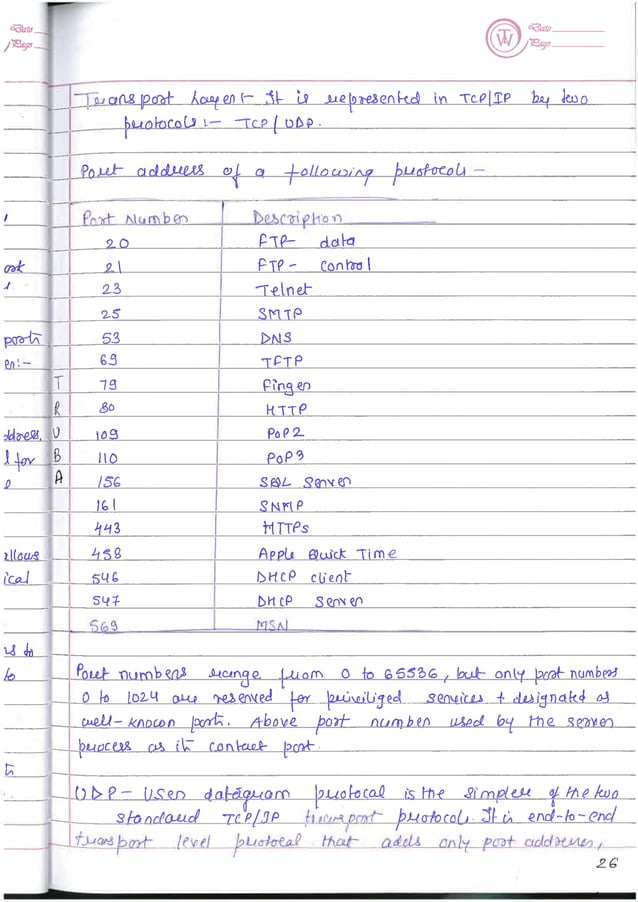 Date
Page
Date
Page
TW
Transport Layer:- It is represented in TCP/IP by two
protocols:- TCP/UDP.
Port address of a following protocols -
Port Number Description
20 FTP- data
21 FTP- control
23 Telnet
25 SMTP
53 DNS
69 TFTP
79 Finger
80 HTTP
109 POP2
110 POP3
156 SQL Server
161 SNMP
443 HTTPs
458 Apple Quick Time
546 DHCP client
547 DHCP Server
569 MSN
Port numbers range from 0 to 65536, but only port numbers
0 to 1024 are reserved for priviliged services & designated as
well-known ports. Above port number used by the server
process as its contact port.
UDP- User datagram protocal is the simpler of the two
standard TCP/IP transport protocols. It is end-to-end
transport level protocal that adds only port addresses,
26
T
R
U
B
A
ort
ports
er:-
ddress.
l for
allows
ical
is to
to